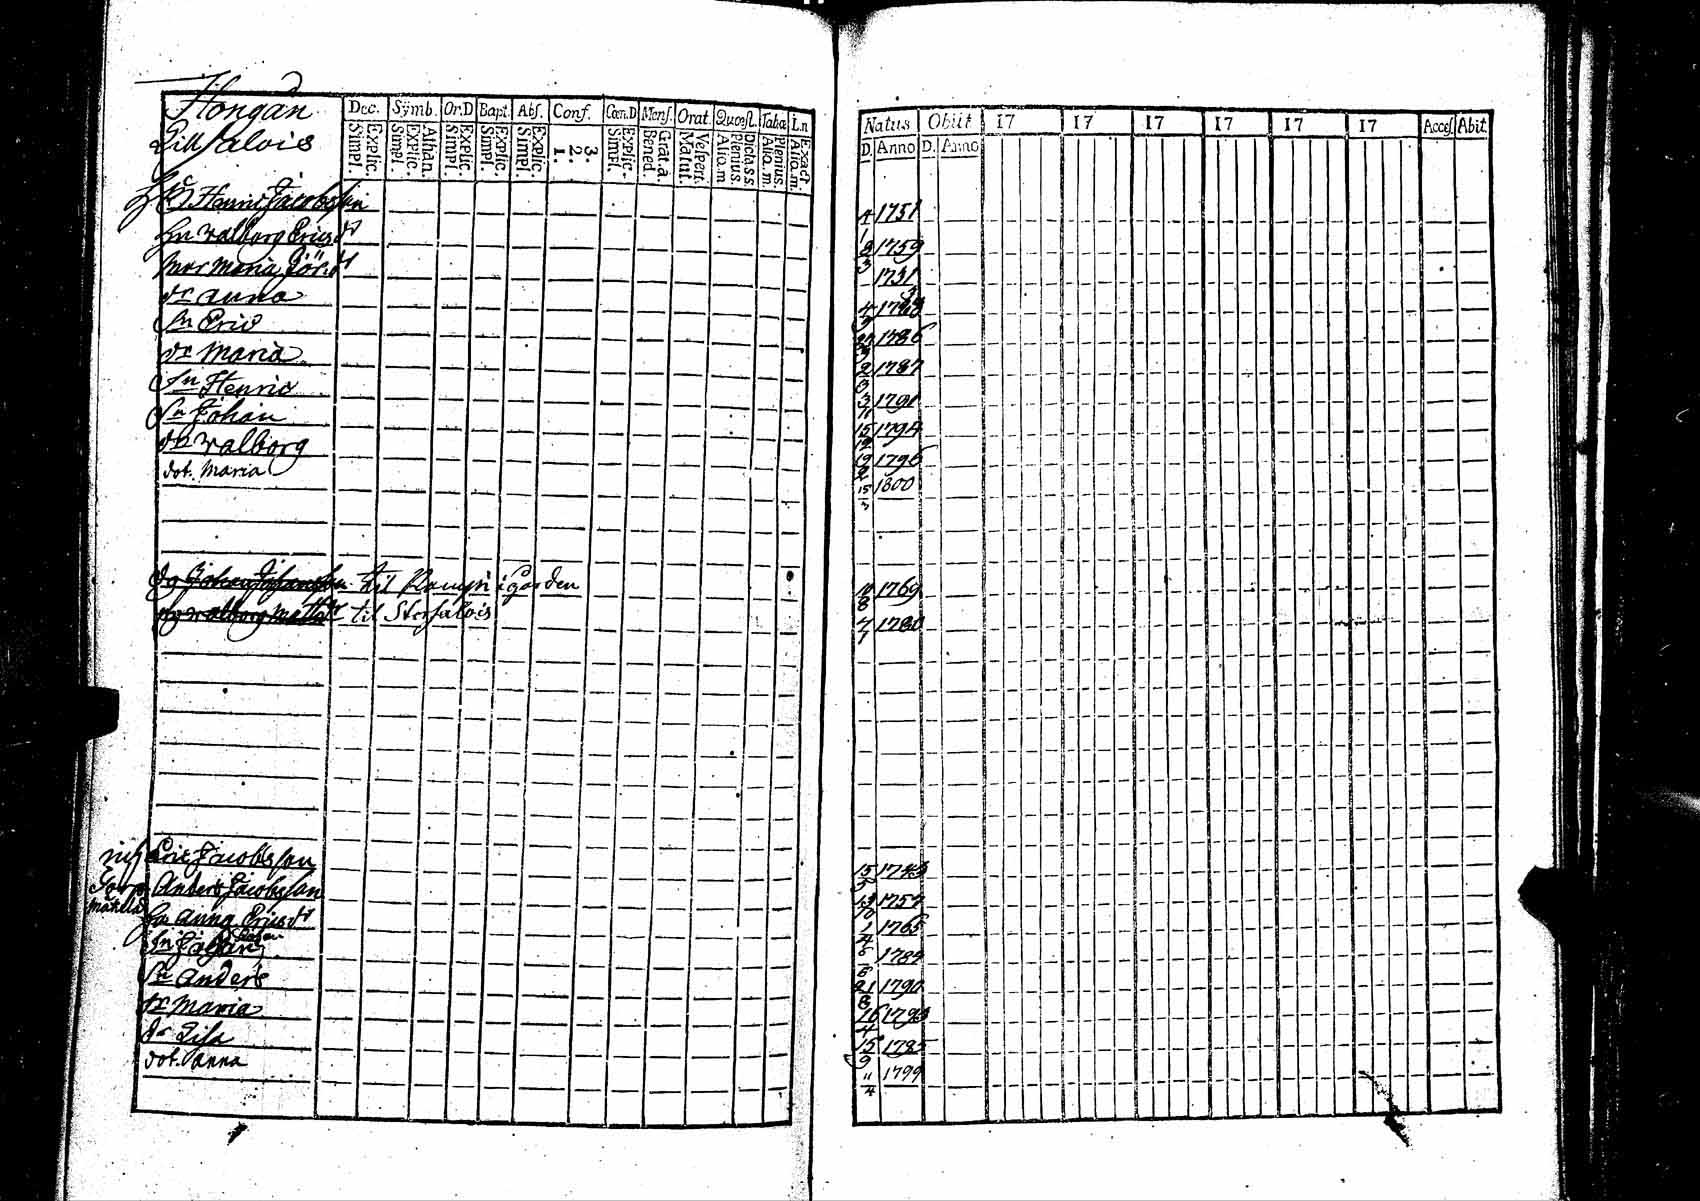 Hongån
Lill Salois
Dec. Symb. Or.D Bapt. Abs. Conf. Cœn.D Mens. Orat. Quæst. Taba Ln
Explic. Simpl. Athan. Explic. Simpl. Explic. Simpl. Explic. Simpl. Explic. Simpl. 3. 2. 1. Explic. Simpl. Grat. a. Bened. Vespert. Matut. Dicta s.s. Plenius. Aliq. m. Plenius. Aliq. m. Exact. Aliq. m.
Natus Obiit 17 17 17 17 17 17 Acces. Abit.
D. Anno D. Anno
Henric Jacobsson 4 1 1751
hu Walborg Ericsdr 3 3 1759
mor Maria Jör.dr 1731
dr Anna 4
sn Eric 1786
dr Maria 2 3 1787
sn Henric 3 11 1791
sn Johan 15 12 1794
dr Walborg 19 2 1796
dot. Maria 15 3 1800
dg Johan Johansson til i Gården 10 8 1769
dg Walborg Mattsdr til Storsalois 7 7 1780
Eric Jacobsson 15 5
Torp. Anders Jacobsson 13 10 1757
Mäkelä
hu Anna Ericsdr 1 4 1765
sn 6 6
sn Anders 21 8 1790
dr Maria 16 4
dr Lisa 15 9 1785
dot. Anna 11 4 1799